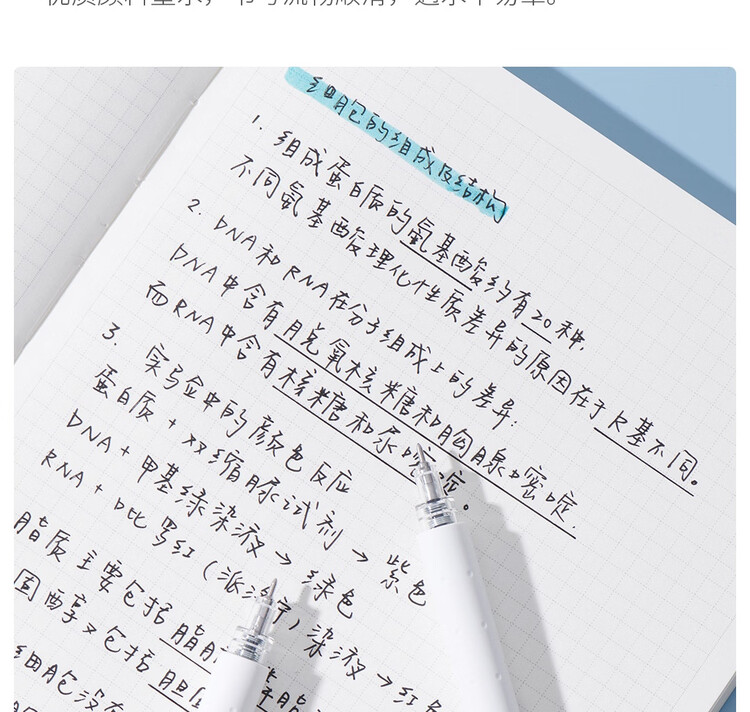 细胞的组成及结构
1. 组成蛋白质的氨基酸约有20种,
不同氨基酸理化性质差异的原因在于R基不同。
2. DNA和RNA在分子组成上的差异:
DNA中含有脱氧核糖和胸腺嘧啶.
而RNA中含有核糖和尿嘧啶。
3. 实验中的颜色反应
蛋白质+双缩脲试剂→紫色
DNA+甲基绿染液→绿色
RNA+吡罗红(派洛宁)染液→红色
脂质主要包括脂肪
固醇又包括胆固
细胞没